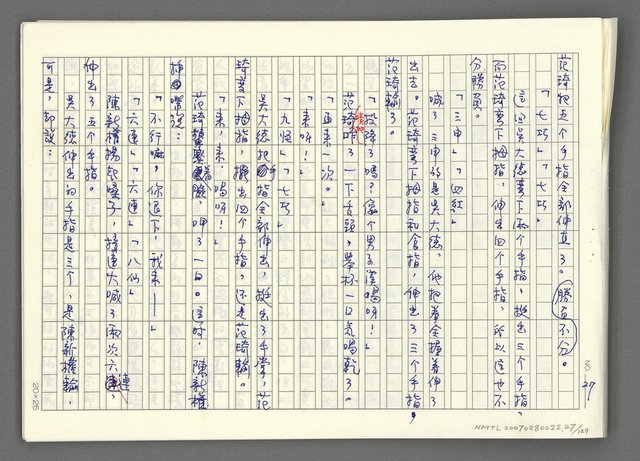 NO. 27
范琦把五个手指全部伸直了。勝負不分。
「七巧」「七巧」
這回吳大德弯下兩个手指，挺出三个手指，
而范琦弯下拇指，伸出四个手指，所以這也不
分勝負。
「三申」「四紅」
喊了三申的是吳大德，他把着全握着伸了
出去。范琦弯下拇指和食指，伸出了三个手指，
范琦輸了。
「投降了嗎？像个男子漢喝呀！」
范琦咋了一下舌頭，擧杯一口気喝乾了。
「再来一次。」
「来呀！」
「九怪」「七巧」
吳大德把手指全部伸出，挺出了手掌，范
琦弯下拇指，攤出四个手指，還是范琦輸。
「来，来，喝呀！」
范琦臉，呷了一口。這時，陳新權
插嘴説：
「不行嘛，你退下，我来——」
「六連」「六連」「八仙」
陳新權揚起嗓子，接連大喊了兩次六連，
伸出了五个手指。
吳大德伸出的手指是三个，是陳新權輸，
可是，却説：
20×25
NMTL20070280022,27/129